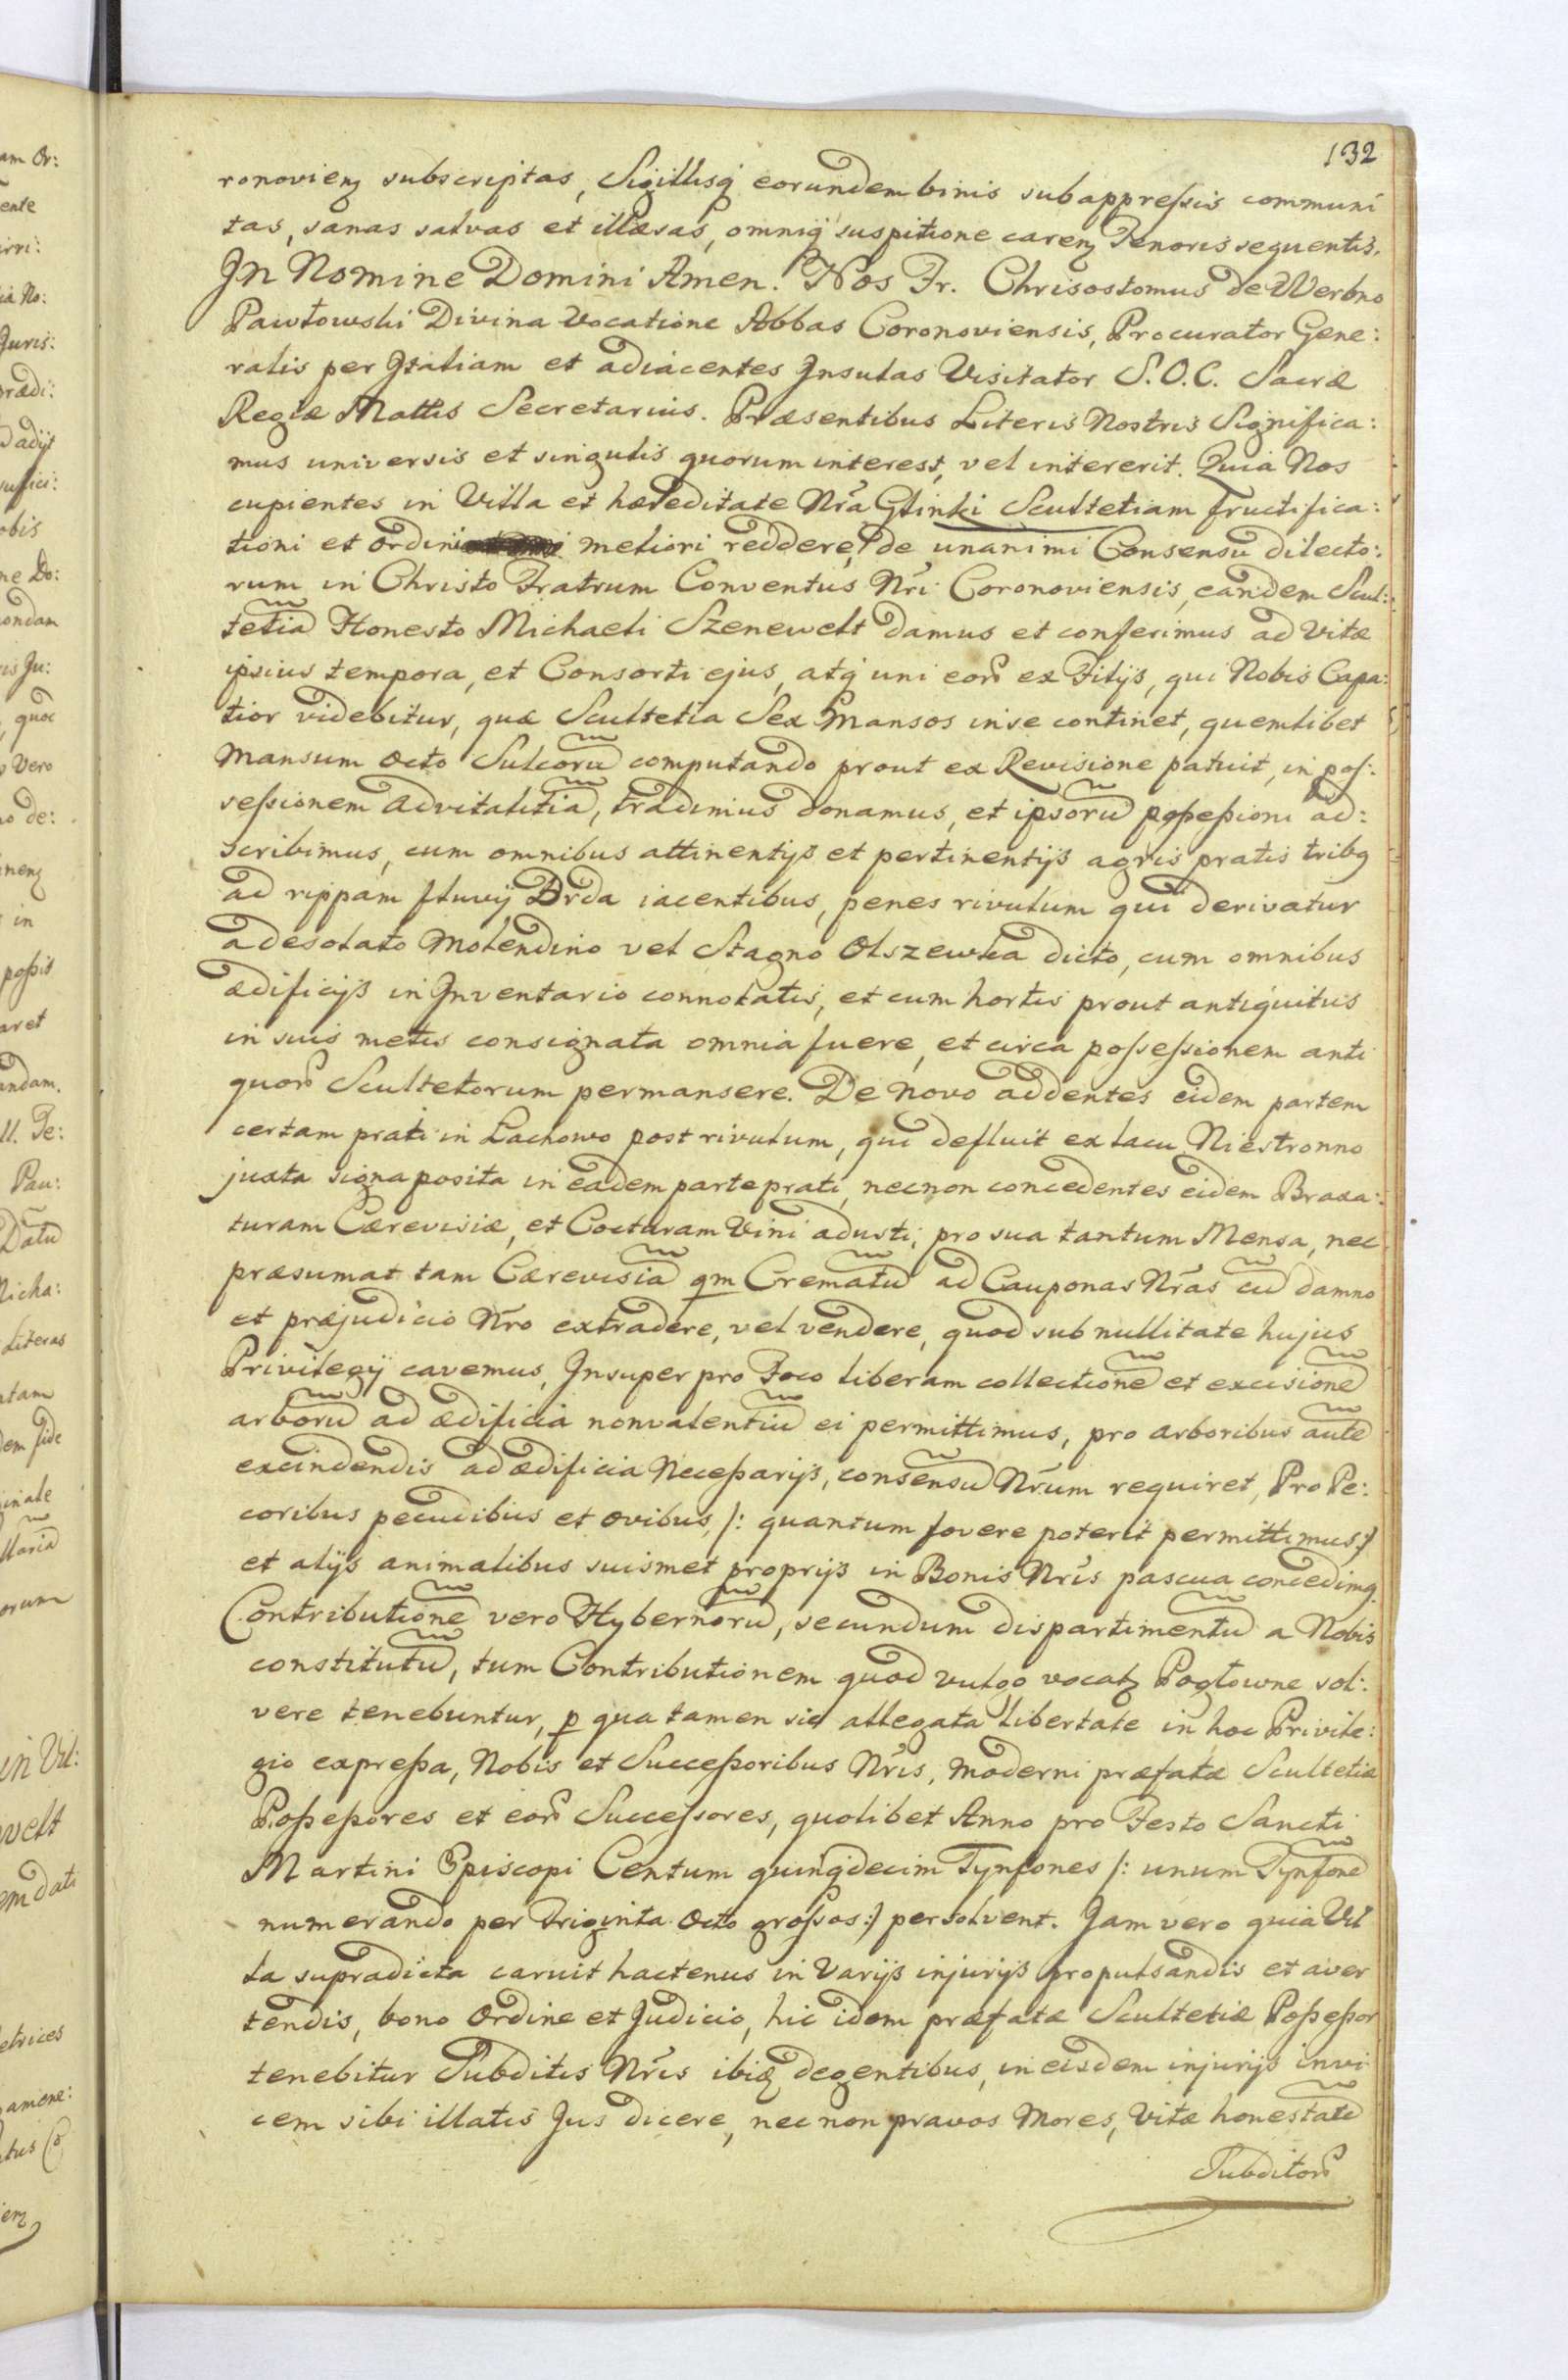 132
ronovienſ subscriptas, Sigillisq́ eorundem binis subappreſsis communi
tas, sanas salvas et illæsas, omniq́ suspitione carenſ Tenoris sequentis.
Jn Nomine Domini Amen. Nos Fr. Chrisostomus de Werbno
Pawłowski Divina Vocatione Abbas Coronoviensis, Procurator Gene:
ralis per Jtaliam et adiacentes Jnsulas Visitator S. O. C. Sacræ
Regiæ Mattis Secretarius. Præsentibus Literis Nostris Significa:
mus universis et singulis quorum interest, vel intererit. Quia Nos
cupientes in Villa et hæreditate Nr̃a Glinki Scultetiam fructifica:
tioni et ordini meliori reddere, de unanimi Consensu dilecto:
rum in Christo Fratrum Conventus Nr̃i Coronoviensis, eandem Scul:
tetiã Honesto Michaeli Szenewelt damus et conferimus ad Vitæ
ipsius tempora, et Consorti ejus, atq́ uni eorũ ex Filijs, qui Nobis Capa:
tior videbitur, quæ Scultetia Sex Mansos in se continet, quemlibet
Mansum octo Sulcorũ computando prout ex Revisione patuit, in poſ:
seſsionem advitalitiã, tradimus donamus, et ipsorũ poſseſsioni ad:
scribimus, cum omnibus attinentijs et pertinentijs agris pratis tribq
ad rippam fluvij Brda iacentibus, penes rivulum qui derivatur
a desolato Molendino vel Stagno Olszewka dicto, cum omnibus
ædificijs in Jnventario connotatis, et cum hortis prout antiquitus
in suis metis consignata omnia fuere, et circa poſseſsionem anti
quorũ Scultetorum permansere. De novo addentes eidem partem
certam prati in Lachowo post rivulum, qui defluit ex lacu Niestronno
juxta signa posita in eadem parte prati, necnon concedentes eidem Braxa:
turam Cærevisiæ, et Cocturam Vini adusti, pro sua tantum Mensa, nec
præsumat tam Cærevisiã qm Crematũ ad Cauponas Nr̃as cũ damno
et præjudicio Nr̃o extradere, vel vendere, quod sub nullitate hujus
Privilegij cavemus, Jnsuper pro Foco liberam collectionẽ et excisionẽ
arborũ ad ædificia nonvalentiũ ei permittimus, pro arboribus autẽ
excindendis ad ædificia Neceſsarijs, consensũ Nr̃um requiret, Pro Pe:
coribus pecudibus et ovibus, /: quantum fovere poterit permittimus:/
et alijs animalibus suismet proprijs in Bonis Nr̃is pascua concedimq.
Contributionẽ vero Hybernorũ, secundum dispartimentũ a Nobis
constitutũ, tum Contributionem quod vulgo vocatʒ Pogłowne sol:
vere tenebuntur, p qua tamen sic allegata libertate in hoc Privile:
gio expreſsa, Nobis et Succeſsoribus Nr̃is, moderni præfatæ Scultetiæ
Poſseſsores et eorũ Succeſsores, quolibet Anno pro Festo Sancti
Martini Episcopi Centum quinq́decim Tynfones /: unum Tynfonẽ
numerando per Triginta Octo groſsos:/ persolvent. Jam vero quia Vil
la supradicta caruit hactenus in Varijs injurijs propulsandis et aver
tendis, bono ordine et Judicio, hic idem præfatæ Scultetiæ Poſseſsor
tenebitur Subditis Nr̃is ibiq́ degentibus, in eisdem injurijs invi
cem sibi illatis Jus dicere, nec non pravos Mores, Vitæ honestatẽ
Subditorũ